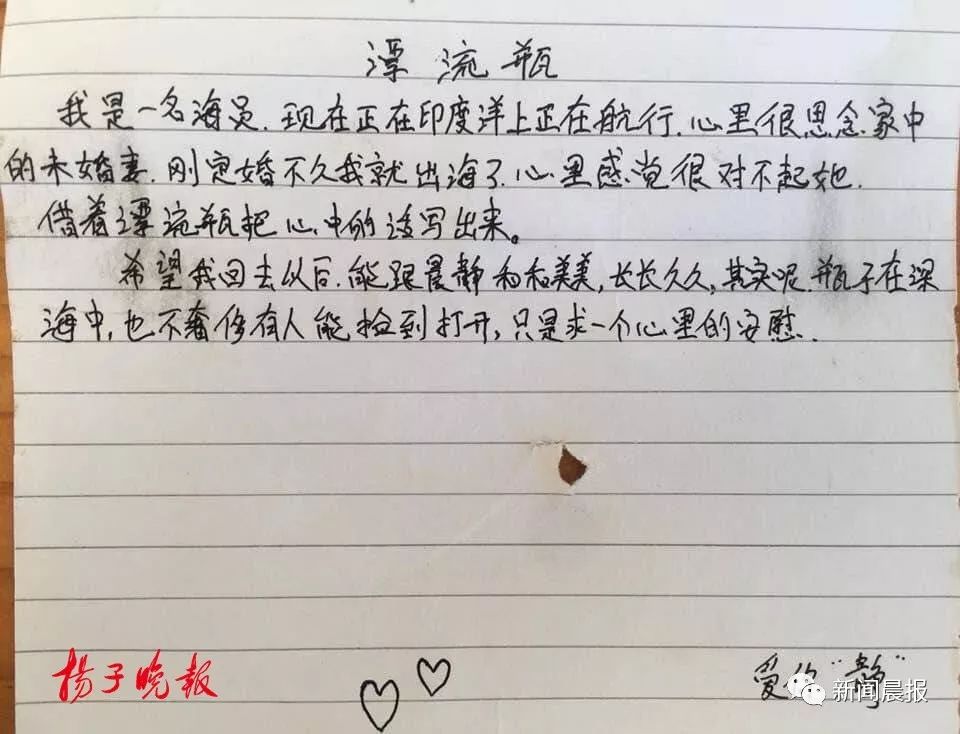 漂流瓶
我是一名海员.现在正在印度洋上正在航行.心里很思念家中
的未婚妻.刚定婚不久我就出海了.心里感觉很对不起她.
借着漂流瓶把心中的话写出来。
希望我回去以后.能跟晨静和和美美,长长久久,其实呢.瓶子在深
海中,也不奢侈有人能捡到打开,只是求一个心里的安慰.
爱你"静"
扬子晚报
新闻晨报